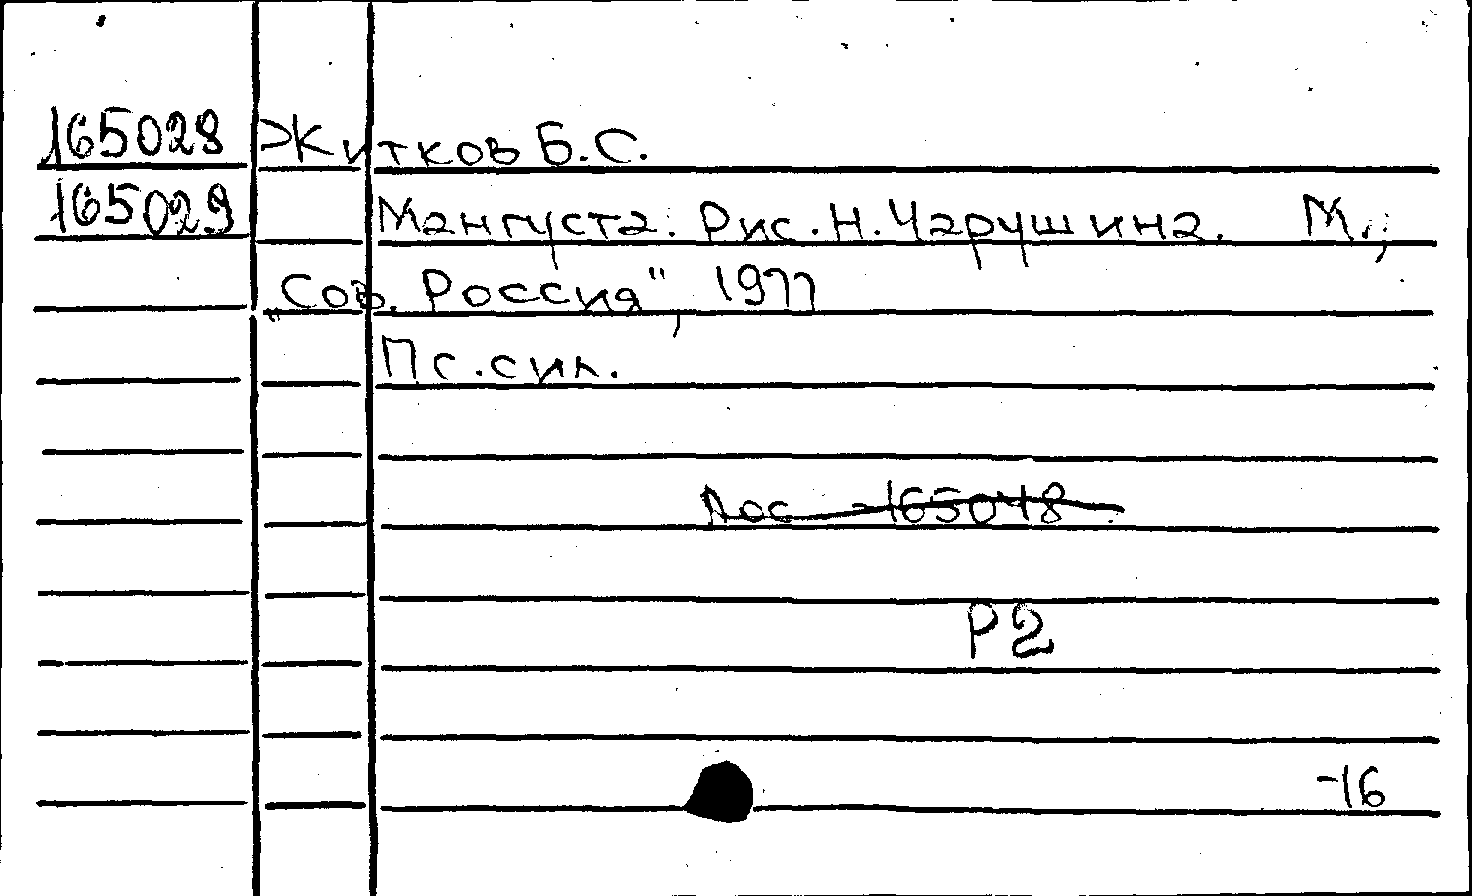 165028 Житков Б.С.
165029 Мангуста. Рис. Н. Чарушина. М.,
„Сов. Россия", 1977
Пс. сил.
165048
Р2
-16